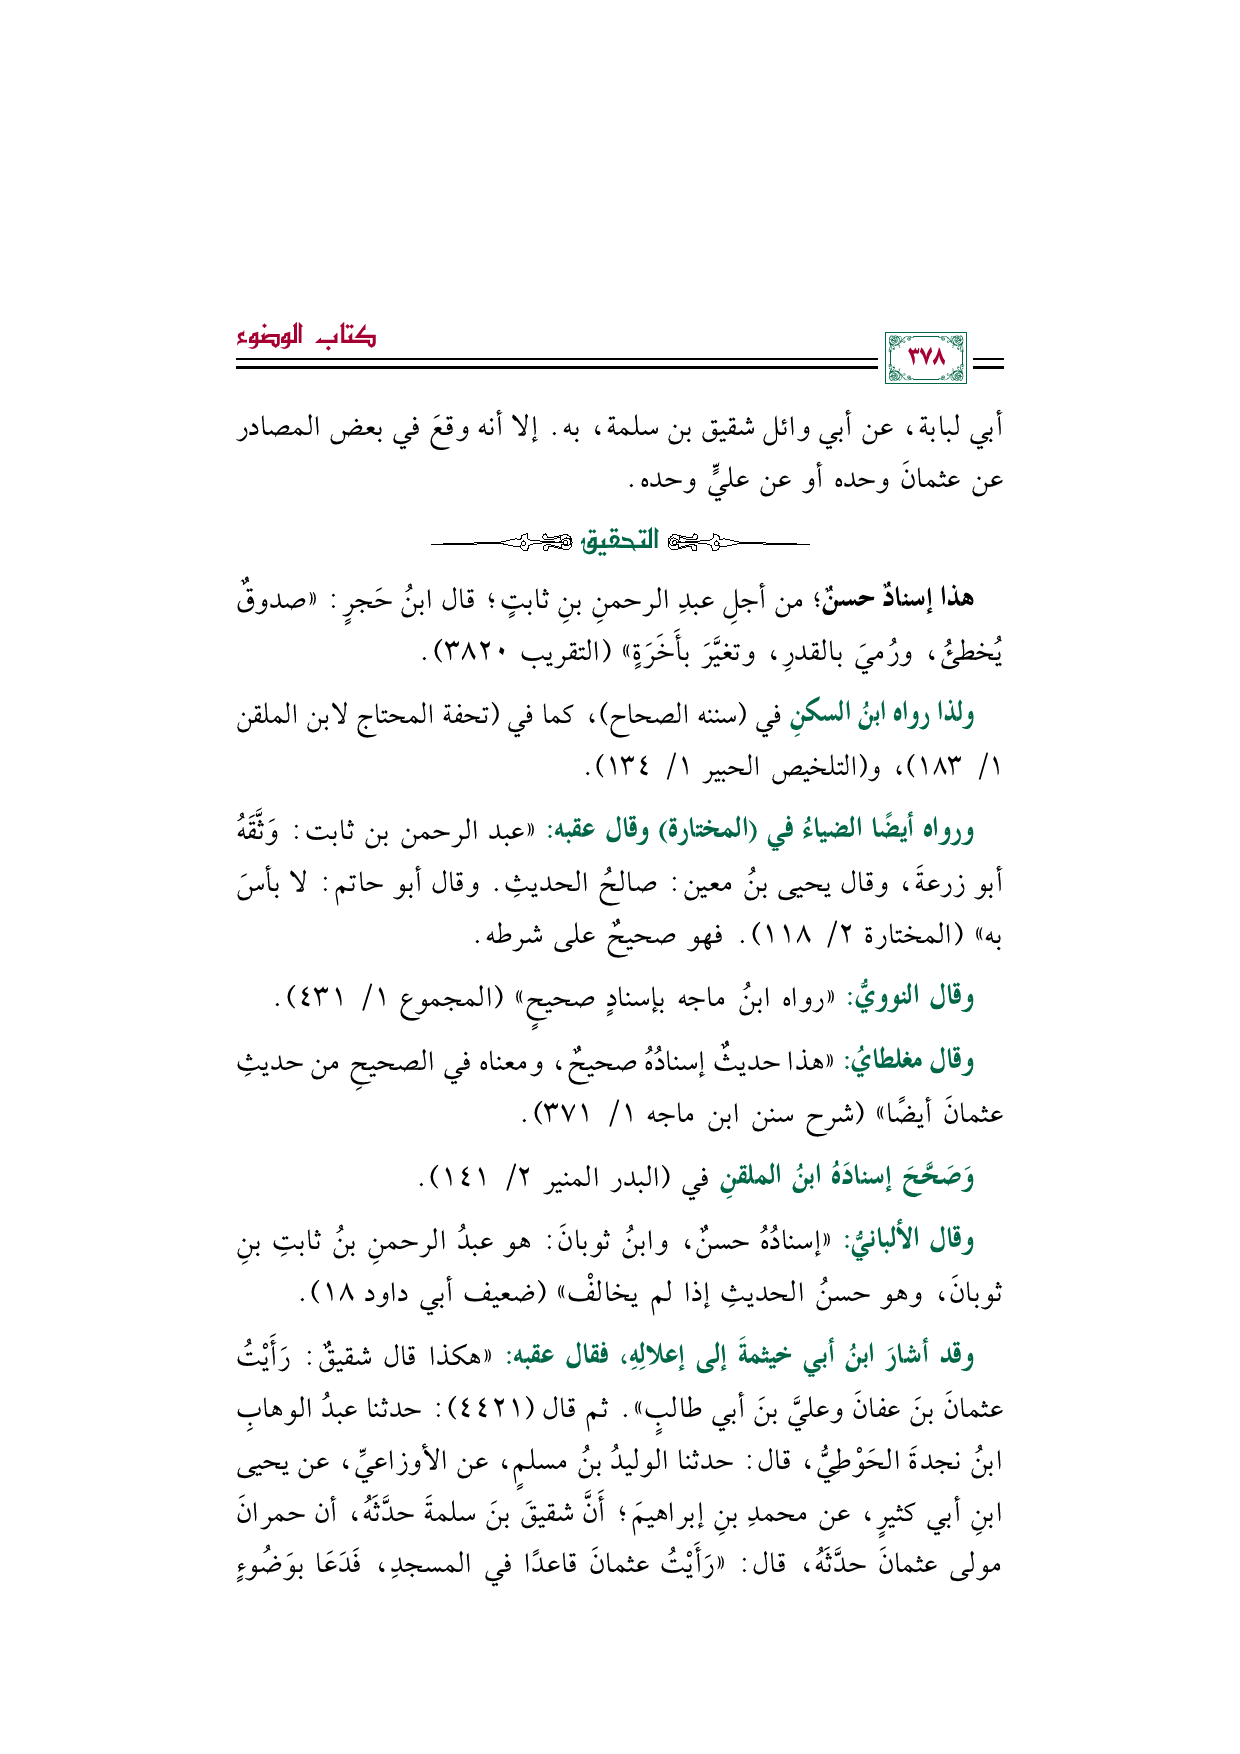 كتاب الوضوء
٣٧٨
أبي لبابة، عن أبي وائل شقيق بن سلمة، به. إلا أنه وقعَ في بعض المصادر
عن عثمانَ وحده أو عن عليٍّ وحده.
التحقيق
هذا إسنادٌ حسنٌ؛ من أجلِ عبدِ الرحمنِ بنِ ثابتٍ؛ قال ابنُ حَجرٍ: «صدوقٌ
يُخطئُ، ورُميَ بالقدرِ، وتغيَّرَ بأَخَرَةٍ» (التقريب ٣٨٢٠).
ولذا رواه ابنُ السكنِ في (سننه الصحاح)، كما في (تحفة المحتاج لابن الملقن
١/ ١٨٣)، و(التلخيص الحبير ١/ ١٣٤).
ورواه أيضًا الضياءُ في (المختارة) وقال عقبه: «عبد الرحمن بن ثابت: وَثَّقَهُ
أبو زرعةَ، وقال يحيى بنُ معين: صالحُ الحديثِ. وقال أبو حاتم: لا بأسَ
به» (المختارة ٢/ ١١٨). فهو صحيحٌ على شرطه.
وقال النوويُّ: «رواه ابنُ ماجه بإسنادٍ صحيحٍ» (المجموع ١/ ٤٣١).
وقال مغلطايُ: «هذا حديثٌ إسنادُهُ صحيحٌ، ومعناه في الصحيحِ من حديثِ
عثمانَ أيضًا» (شرح سنن ابن ماجه ١/ ٣٧١).
وَصَحَّحَ إسنادَهُ ابنُ الملقنِ في (البدر المنير ٢/ ١٤١).
وقال الألبانيُّ: «إسنادُهُ حسنٌ، وابنُ ثوبانَ: هو عبدُ الرحمنِ بنُ ثابتِ بنِ
ثوبانَ، وهو حسنُ الحديثِ إذا لم يخالفْ» (ضعيف أبي داود ١٨).
وقد أشارَ ابنُ أبي خيثمةَ إلى إعلالِهِ، فقال عقبه: «هكذا قال شقيقٌ: رَأَيْتُ
عثمانَ بنَ عفانَ وعليَّ بنَ أبي طالبٍ». ثم قال (٤٤٢١): حدثنا عبدُ الوهابِ
ابنُ نجدةَ الحَوْطِيُّ، قال: حدثنا الوليدُ بنُ مسلمٍ، عن الأوزاعيِّ، عن يحيى
ابنِ أبي كثيرٍ، عن محمدِ بنِ إبراهيمَ؛ أَنَّ شقيقَ بنَ سلمةَ حدَّثَهُ، أن حمرانَ
مولى عثمانَ حدَّثَهُ، قال: «رَأَيْتُ عثمانَ قاعدًا في المسجدِ، فَدَعَا بوَضُوءٍ